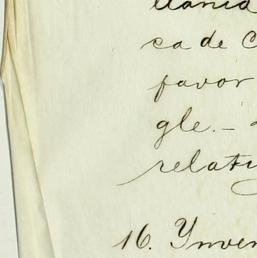 ca de C
favor
gle. –
relati
16. Ynven